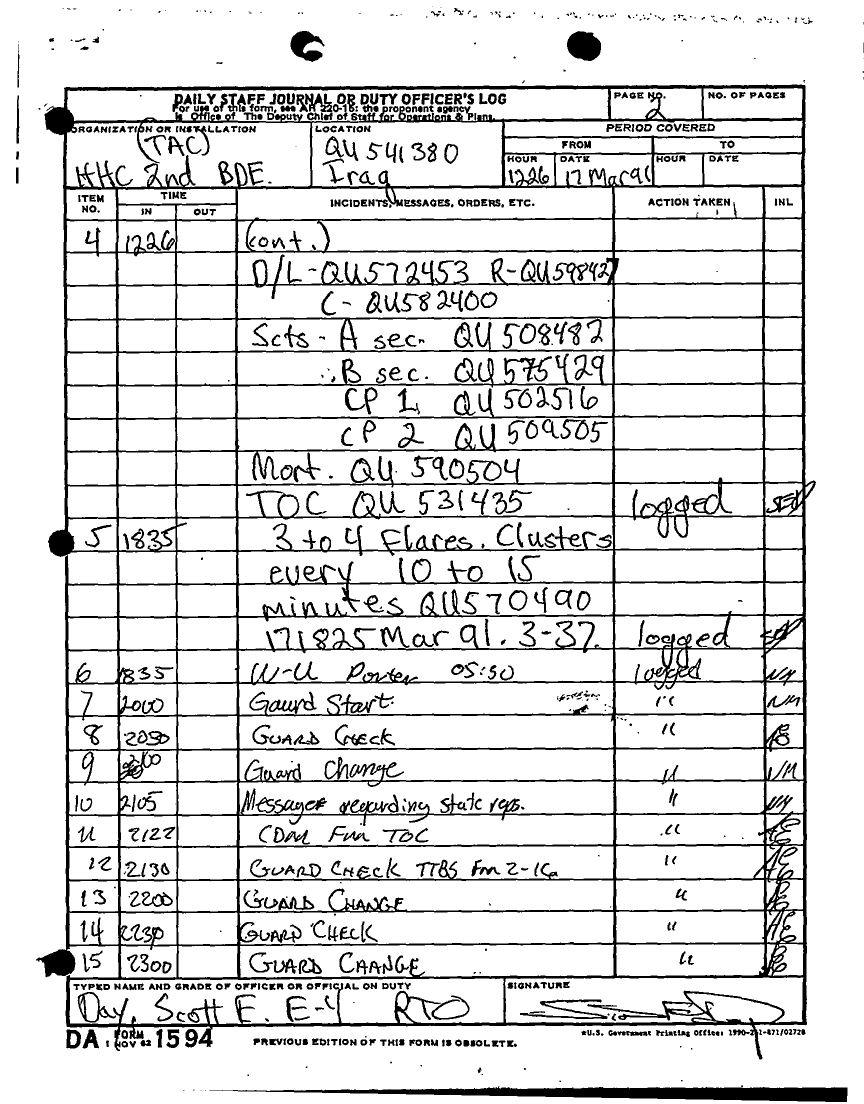 DAILY STAFF JOURNAL OR DUTY OFFICER'S LOG
For use of this form, see AR 220-15: the proponent agency
is Office of The Deputy Chief of Staff for Operations & Plans.
PAGE NO.
2
NO. OF PAGES
ORGANIZATION OR INSTALLATION
(TAC)
HHC 2nd BDE.
LOCATION
QU 541380
Iraq
PERIOD COVERED
FROM
TO
HOUR
1226
DATE
17 Mar 91
HOUR
DATE
ITEM NO.
TIME
IN
OUT
INCIDENTS, MESSAGES, ORDERS, ETC.
ACTION TAKEN
INL
4 1226 (cont.)
D/L-QU572453 R-QU598427
C- QU582400
Scts - A sec. QU 508482
B sec. QU 575429
CP 1 QU 502516
CP 2 QU 509505
Mort. QU 590504
TOC QU 531435 logged SED
5 1835 3 to 4 Flares. Clusters
every 10 to 15
minutes QU570490
171825 Mar 91. 3-37. logged SED
6 1835 W-U Porter 05:30 logged
7 2000 Gaurd Start "
8 2030 GUARD CHECK "
9 2100 Guard Change "
10 2105 Messages regarding state reps. "
11 2122 Fm TOC "
12 2130 GUARD CHECK TTBS Fm 2-16 "
13 2200 GUARD CHANGE "
14 2230 GUARD CHECK "
15 2300 GUARD CAANGE "
TYPED NAME AND GRADE OF OFFICER OR OFFICIAL ON DUTY
Day, Scott E. E-4 RTO
SIGNATURE
DA FORM 1 NOV 62 1594
PREVIOUS EDITION OF THIS FORM IS OBSOLETE.
*U.S. Government Printing Office: 1990-261-871/02728